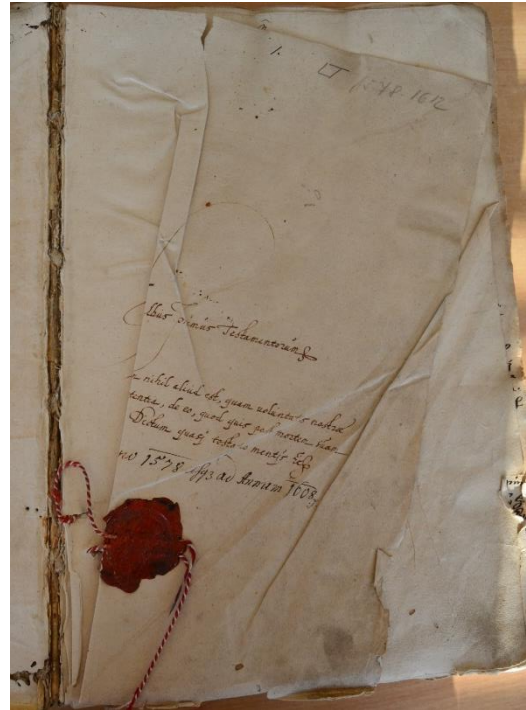 1.
1578-1612
lbus Primus Testamentorum
nihil aliud est, quam voluntatis nostra
tentia, de eo, quod quis post mortem suam
Dictum quasi testatio mentis
no 1578 usq3 ad Annum 1608